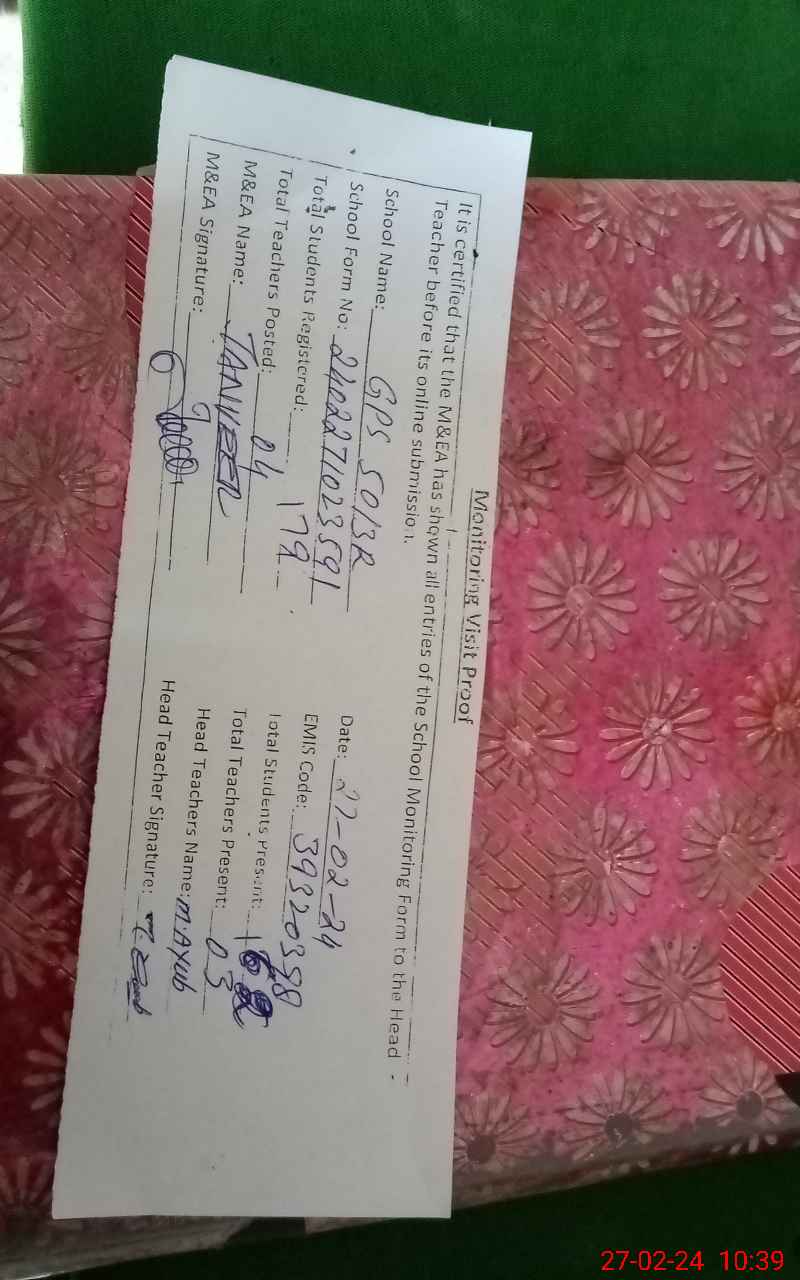 Monitoring Visit Proof
It is certified that the M&EA has shown all entries of the School Monitoring Form to the Head
Teacher before its online submission.
School Name: GPS 50/3R Date: 27-02-24
School Form No: 2402271023591 EMIS Code: 39320398
Total Students Registered: 179 Total Students Present:
Total Teachers Posted: 04 Total Teachers Present: 03
M&EA Name: TANVEER Head Teachers Name: M.AYUB
M&EA Signature: Head Teacher Signature:
27-02-24 10:39